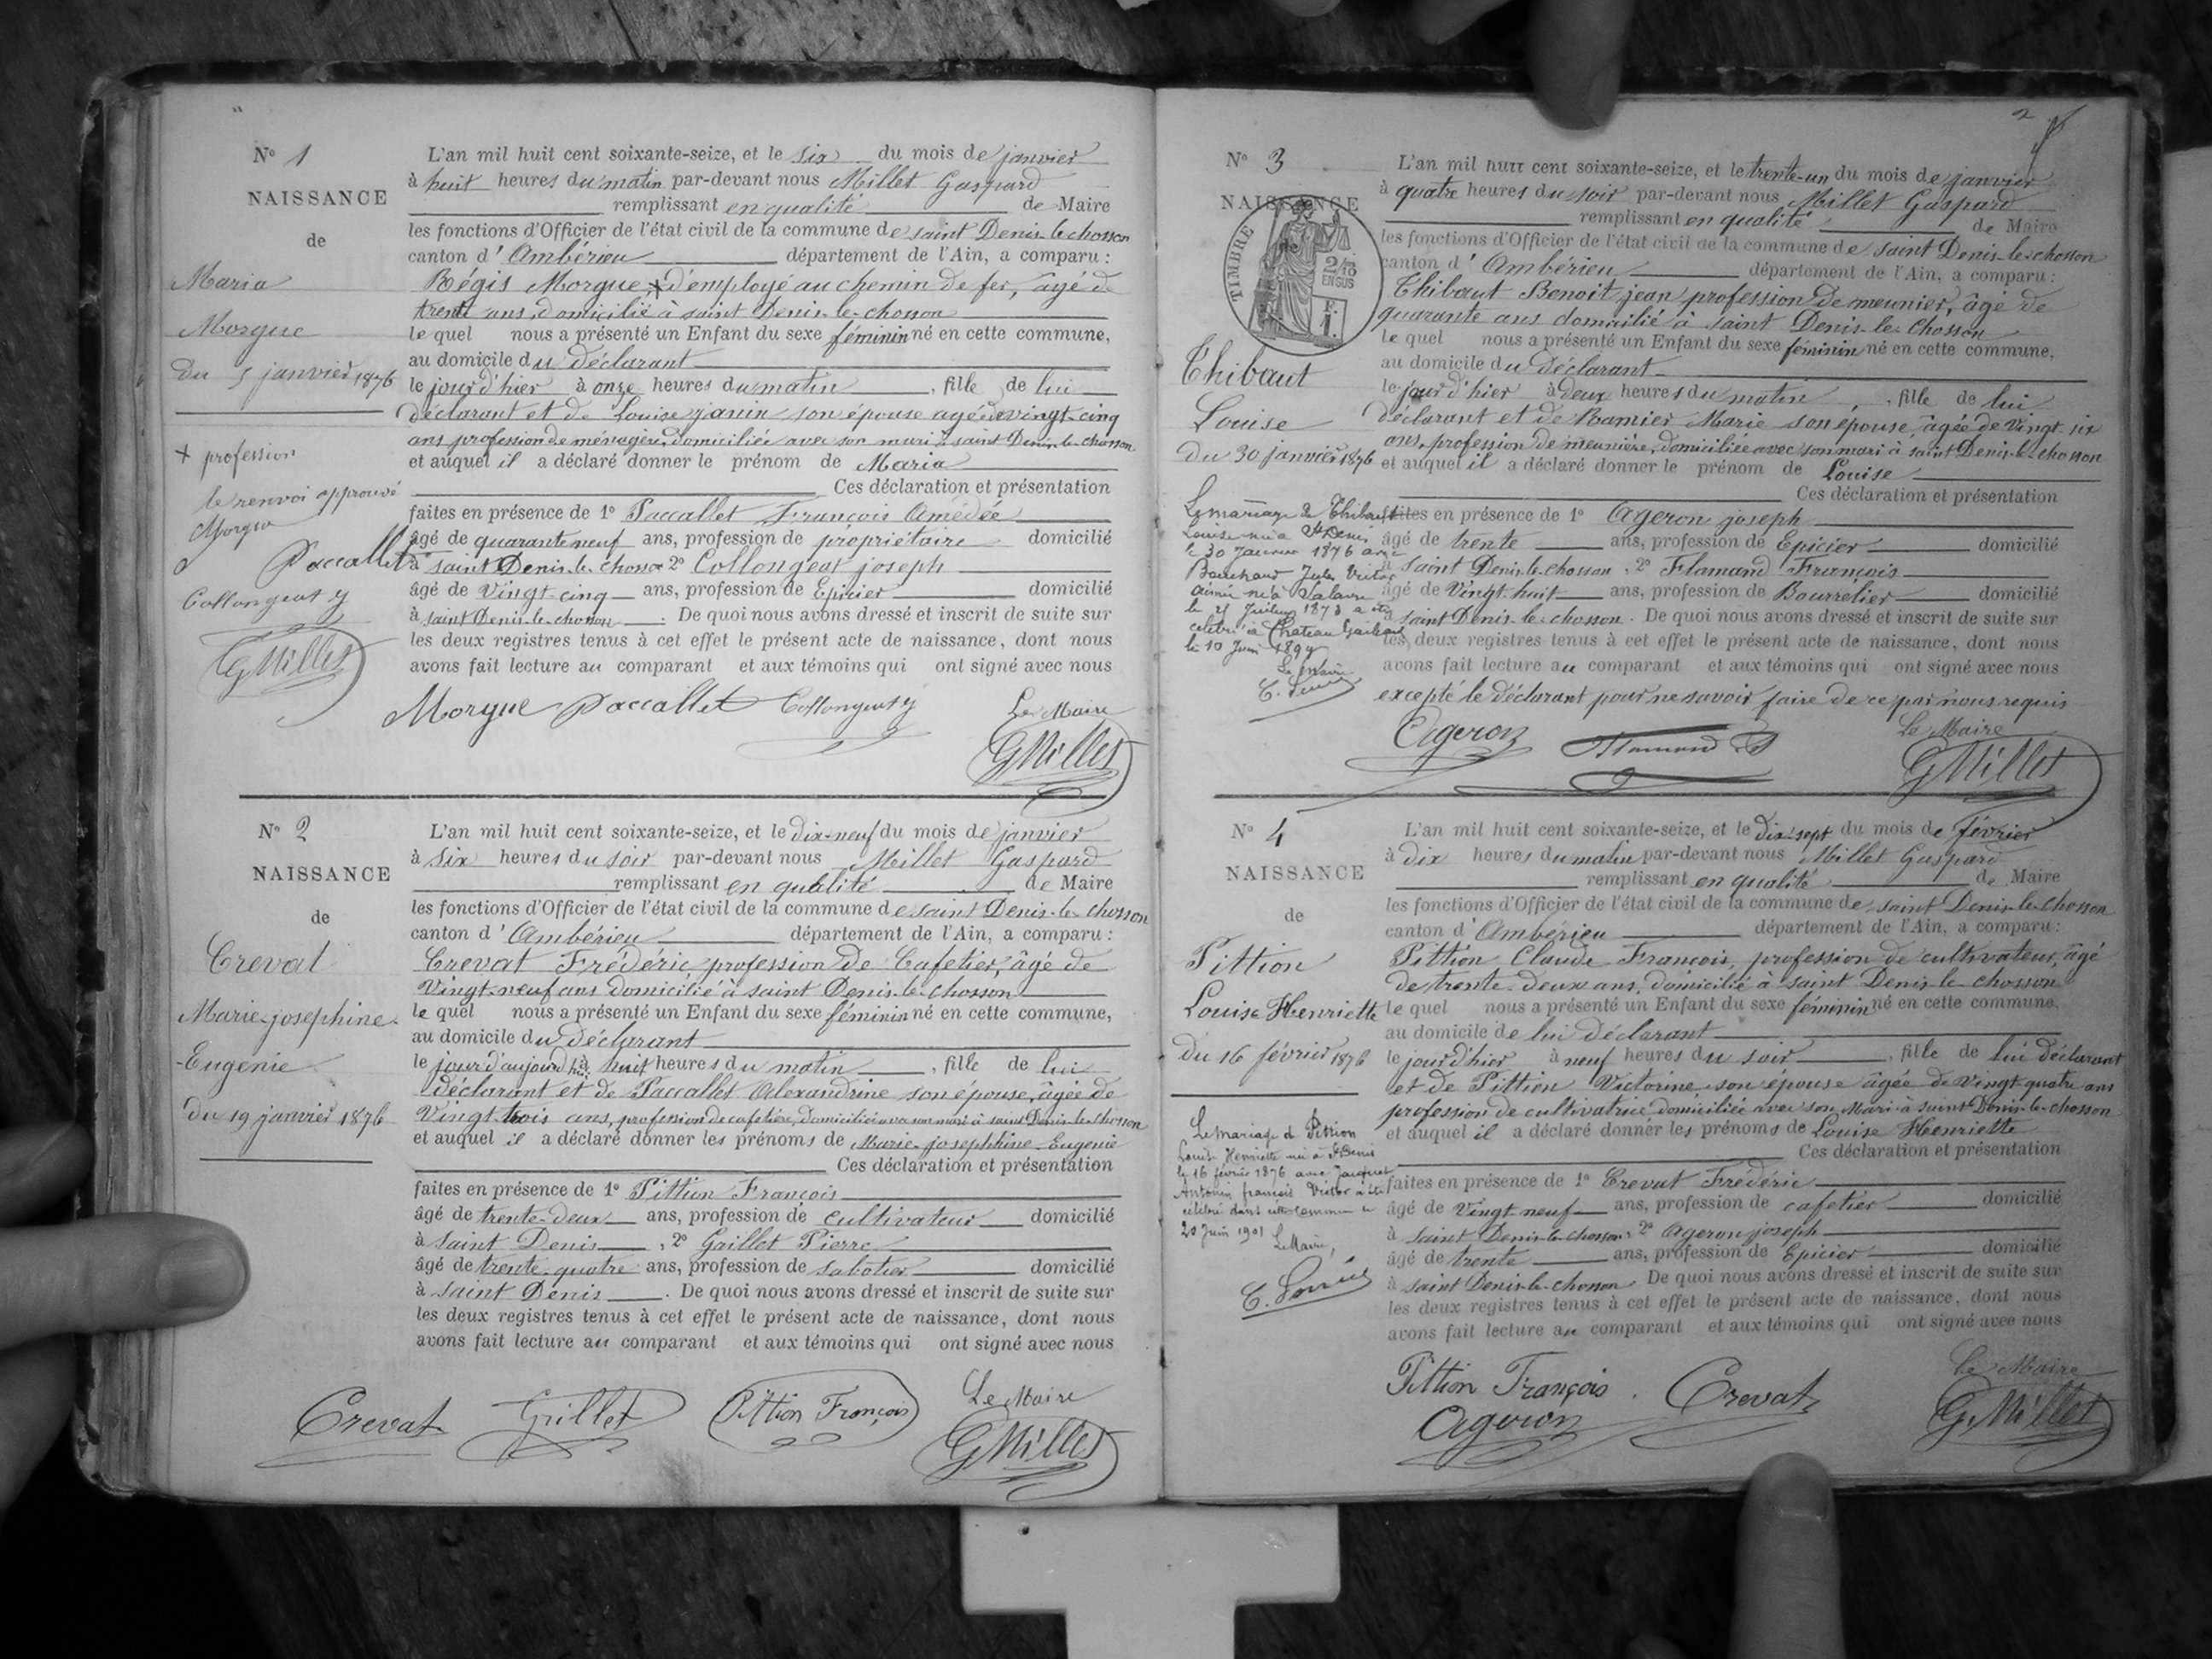 N° 1
NAISSANCE
de
Maria
Morgue
du 5 janvier 1876
+ profession
le renvoi approuvé
Morgue
Paccallet
Collongeat J
GMillet
L'an mil huit cent soixante-seize, et le six du mois de janvier
à huit heures du matin par-devant nous Millet Gaspard
remplissant en qualité de Maire
les fonctions d'Officier de l'état civil de la commune de saint Denis-le-chosson
canton d'Ambérieu département de l'Ain, a comparu :
Régis Morgue, + d'employé au chemin de fer, âgé de
trente ans, domicilié à saint Denis-le-chosson
le quel nous a présenté un Enfant du sexe féminin né en cette commune,
au domicile du déclarant
le jour d'hier à onze heures du matin, fille de lui
déclarant et de Louise janin son épouse agée de vingt-cinq
ans profession de ménagère, domiciliée avec son mari à saint Denis-le-chosson
et auquel il a déclaré donner le prénom de Maria
Ces déclaration et présentation
faites en présence de 1° Paccallet François Amédée
âgé de quarante neuf ans, profession de propriétaire domicilié
à saint Denis-le-chosson 2° Collongeat joseph
âgé de Vingt-cinq ans, profession de Epicier domicilié
à saint Denis-le-chosson. De quoi nous avons dressé et inscrit de suite sur
les deux registres tenus à cet effet le présent acte de naissance, dont nous
avons fait lecture au comparant et aux témoins qui ont signé avec nous
Morgue Paccallet Collongeat J Le Maire
GMillet
N° 2
NAISSANCE
de
Crevat
Marie-josephine-
-Eugenie
du 19 janvier 1876
L'an mil huit cent soixante-seize, et le dix-neuf du mois de janvier
à six heures du soir par-devant nous Millet Gaspard
remplissant en qualité de Maire
les fonctions d'Officier de l'état civil de la commune de saint Denis-le-chosson
canton d'Ambérieu département de l'Ain, a comparu :
Crevat Frédéric, profession de Cafetier, âgé de
Vingt-neuf ans domicilié à saint Denis-le-chosson
le quel nous a présenté un Enfant du sexe féminin né en cette commune,
au domicile du déclarant
le jour d'aujourd'hui à huit heures du matin, fille de lui
déclarant et de Paccallet Alexandrine son épouse, âgée de
Vingt-trois ans, profession de cafetière, domiciliée avec son mari à saint Denis-le-chosson
et auquel il a déclaré donner les prénoms de Marie-josephhine-Eugenie
Ces déclaration et présentation
faites en présence de 1° Pittion François
âgé de trente-deux ans, profession de cultivateur domicilié
à saint Denis, 2° Grillet Pierre
âgé de trente-quatre ans, profession de sabotier domicilié
à saint Denis. De quoi nous avons dressé et inscrit de suite sur
les deux registres tenus à cet effet le présent acte de naissance, dont nous
avons fait lecture au comparant et aux témoins qui ont signé avec nous
Crevat Grillet Pittion François Le Maire
GMillet
2
N° 3
NAISSANCE
TIMBRE
2/10
EN SUS
F.
1.
Thibaut
Louise
du 30 janvier 1876
Le mariage de Thibaut
Louise née à St Denis
le 30 Janvier 1876 avec
Jules Victor
aimé né à
le 21 1873 a été
célébré à Chateau Gaillard
le 10 Juin 1899
Le Maire
L'an mil huit cent soixante-seize, et le trente-un du mois de janvier
à quatre heures du soir par-devant nous Millet Gaspard
remplissant en qualité de Maire
les fonctions d'Officier de l'état civil de la commune de saint Denis-le-chosson
canton d'Ambérieu département de l'Ain, a comparu :
Thibaut Benoit jean profession de meunier, âgé de
quarante ans domicilié à saint Denis-le-chosson
le quel nous a présenté un Enfant du sexe féminin né en cette commune,
au domicile du déclarant
le jour d'hier à deux heures du matin, fille de lui
déclarant et de Ramier Marie son épouse, âgée de Vingt-six
ans, profession de meunière, domiciliée avec son mari à saint Denis-le-chosson
et auquel il a déclaré donner le prénom de Louise
Ces déclaration et présentation
faites en présence de 1° Ageron joseph
âgé de trente ans, profession de Epicier domicilié
à saint Denis-le-chosson, 2° Flamand François
âgé de Vingt-huit ans, profession de Bourrelier domicilié
à saint Denis-le-chosson. De quoi nous avons dressé et inscrit de suite sur
les deux registres tenus à cet effet le présent acte de naissance, dont nous
avons fait lecture au comparant et aux témoins qui ont signé avec nous
excepté le déclarant pour ne savoir faire de ce par nous requis
Ageron Flamand F Le Maire
GMillet
N° 4
NAISSANCE
de
Pittion
Louise Henriette
du 16 février 1876
Le mariage de Pittion
Louise Henriette née à St Denis
le 16 février 1876 avec Jacquet
Antonin françois Victor a été
célébré dans cette commune le
20 Juin 1901
Le Maire,
L'an mil huit cent soixante-seize, et le dix-sept du mois de février
à dix heures du matin par-devant nous Millet Gaspard
remplissant en qualité de Maire
les fonctions d'Officier de l'état civil de la commune de saint Denis-le-chosson
canton d'Ambérieu département de l'Ain, a comparu :
Pittion Claude François, profession de cultivateur, âgé
de trente-deux ans, domicilié à saint Denis-le-chosson
le quel nous a présenté un Enfant du sexe féminin né en cette commune,
au domicile de lui déclarant
le jour d'hier à neuf heures du soir, fille de lui déclarant
et de Pittion Victorine son épouse âgée de Vingt quatre ans
profession de cultivatrice domiciliée avec son Mari à saint Denis-le-chosson
et auquel il a déclaré donner les prénoms de Louise Henriette
Ces déclaration et présentation
faites en présence de 1° Crevat Frédéric
âgé de Vingt neuf ans, profession de cafetier domicilié
à saint Denis-le-chosson, 2° Ageron joseph
âgé de trente ans, profession de Epicier domicilié
à saint Denis-le-chosson. De quoi nous avons dressé et inscrit de suite sur
les deux registres tenus à cet effet le présent acte de naissance, dont nous
avons fait lecture au comparant et aux témoins qui ont signé avec nous
Pittion François. Crevat Le Maire
Ageron GMillet